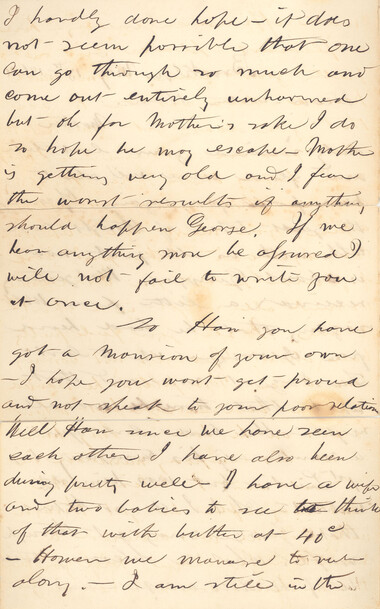 I hardly done hope – it does
not seem possible that one
can go through so much and
come out entirely unharmed
but – oh for Mother's sake I do
so hope he may escape – Mother
is getting very old and I fear
the worst results if anything
should happen George. If we
hear anything more be assured I
will not fail to write you
at once.
So Han you have
got a mansion of your own
– I hope you wont get proud
and not speak to your poor relation
Well Han since we have seen
each other I have also been
doing pretty well – I have a wife
and two babies to see to think
of that with butter at 40c
– However we manage to rub
along. – I am still in the